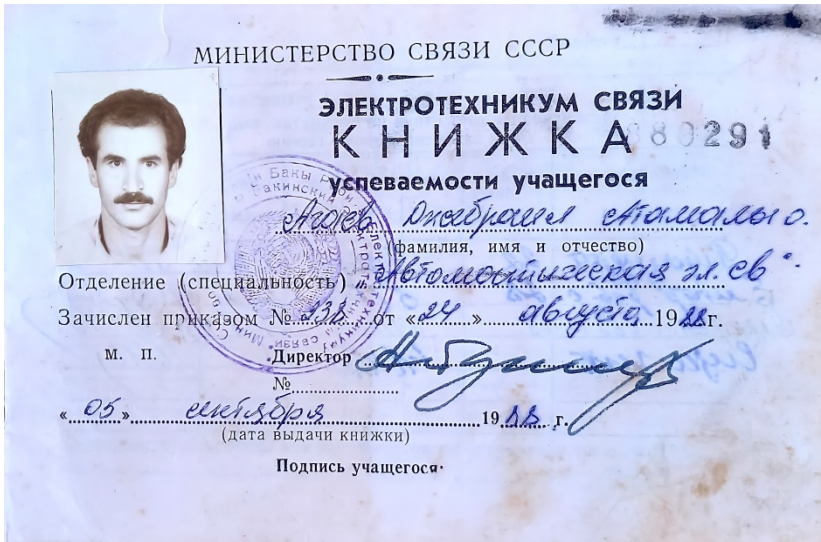 МИНИСТЕРСТВО СВЯЗИ СССР
ЭЛЕКТРОТЕХНИКУМ СВЯЗИ
КНИЖКА 880291
успеваемости учащегося
Агаев Джабраил Атамалы о.
(фамилия, имя и отчество)
Отделение (специальность) „Автоматическая эл. св“.
Зачислен приказом № 238 от «24» августа 1988 г.
М. П. Директор
№
«05» сентября 1988 г.
(дата выдачи книжки)
Подпись учащегося